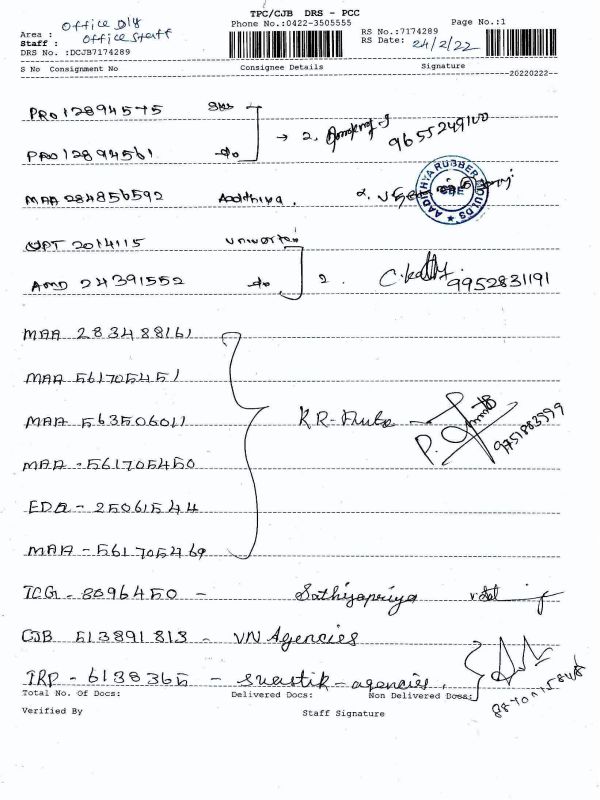 TPC/CJB DRS - PCC
Area : Office Dly Phone No.:0422-3505555 Page No.:1
Staff : Office Staff RS No.:7174289
DRS No. :DCJB7174289 RS Date: 24/2/22
S No Consignment No Consignee Details Signature
20220222--
PRO 12894575
→ 2. 9655249100
PRO 12894561 do
MAA 284856592 Aadthiya. 2.
AADHIYA RUBBER MOULDS CBE
UPT 2014115
AMD 24391552 do 2. 9952831191
MAA 283488161
MAA 561705451
MAA 563506011 KR- P. 9751882599
MAA - 561705450
EDA - 25061544
MAA - 561705469
TCG - 8096450 - Sathiyapriya
CJB 513891813 - VN Agencies
TRP - 6138365 - swastik - agencies.
Total No. Of Docs: Delivered Docs: Non Delivered Docs:
Verified By Staff Signature